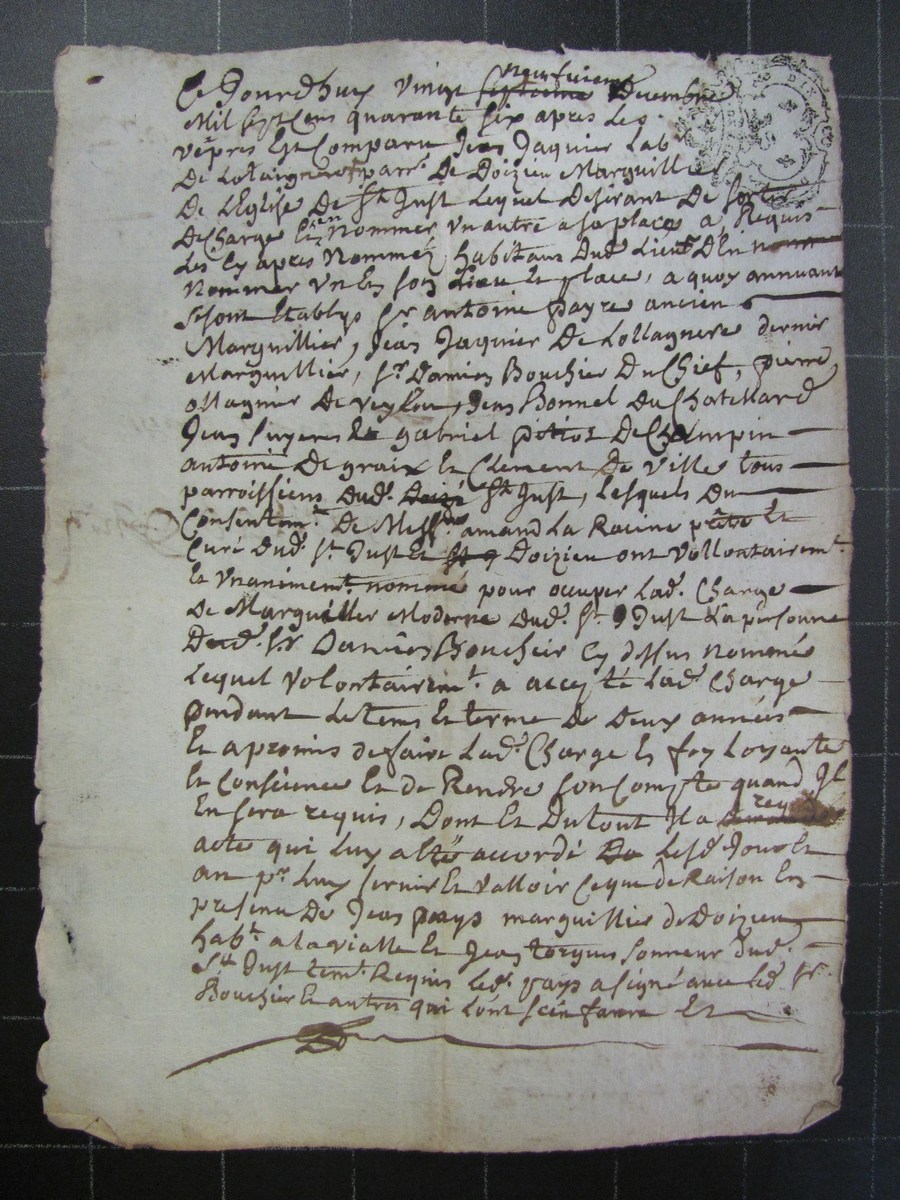 Ce Jourdhuy vingt neufvieme Decembre
Mil sept cens quarante six apres les
vepres Est Comparu Jean Jaquier Lab
De parr. De Doizieu Marguillier
De L'Eglise De St Just Lequel Desirant De sortir
De Charge Et en Nommer un autre a sa place a Requis
Les Cy apres Nommés habitans Dud. Lieu D'En
Nommer un En son Lieu Et place, a quoy annuant
se sont Etablys Sr antoine payre ancien
Marguillier, Jean Jaquier De Lollagnere dernier
Marguillier, Sr. Damien Bouchier Du Chief, pierre
ollagnier De veylou, Jean Bonnel Du Chatellard
Jean Gabriel pitiot De Champin
antoine De graix Et Clement De Ville tous
parroissiens Dud. St Just, Lesquels Du
Consentemt. De Messe amand La Racine prêtre Et
Curé Dud. St. Just Et Doizieu ont vollontairemt.
Et unanimemt. nommé pour occuper Lad. Charge
De Marguiller Moderne Dud. St. Just La personne
Dud. Sr Damien Bouchier Cy dessus nommé
Lequel volontairemt. a accepté Lad. Charge
pendant Le tems Et terme De Deux années
Et a promis de faire Lad. Charge En foy Loyauté
Et Consience Et de Rendre son Compte quand Il
En sera requis, Dont Et Du tout Il a req
acte qui Luy a Eté accordé Lesd. Jour Et
an pr. Luy servir Et valloir Ce que de Raison En
presence De Jean pays marguillier de Doizieu
habt. a la vialle Et Jean sonneur Dud.
St Just temt. Requis Led. pays a signé avec Led. Sr.
Bouchier Et autres qui L'ont sceu faire Et